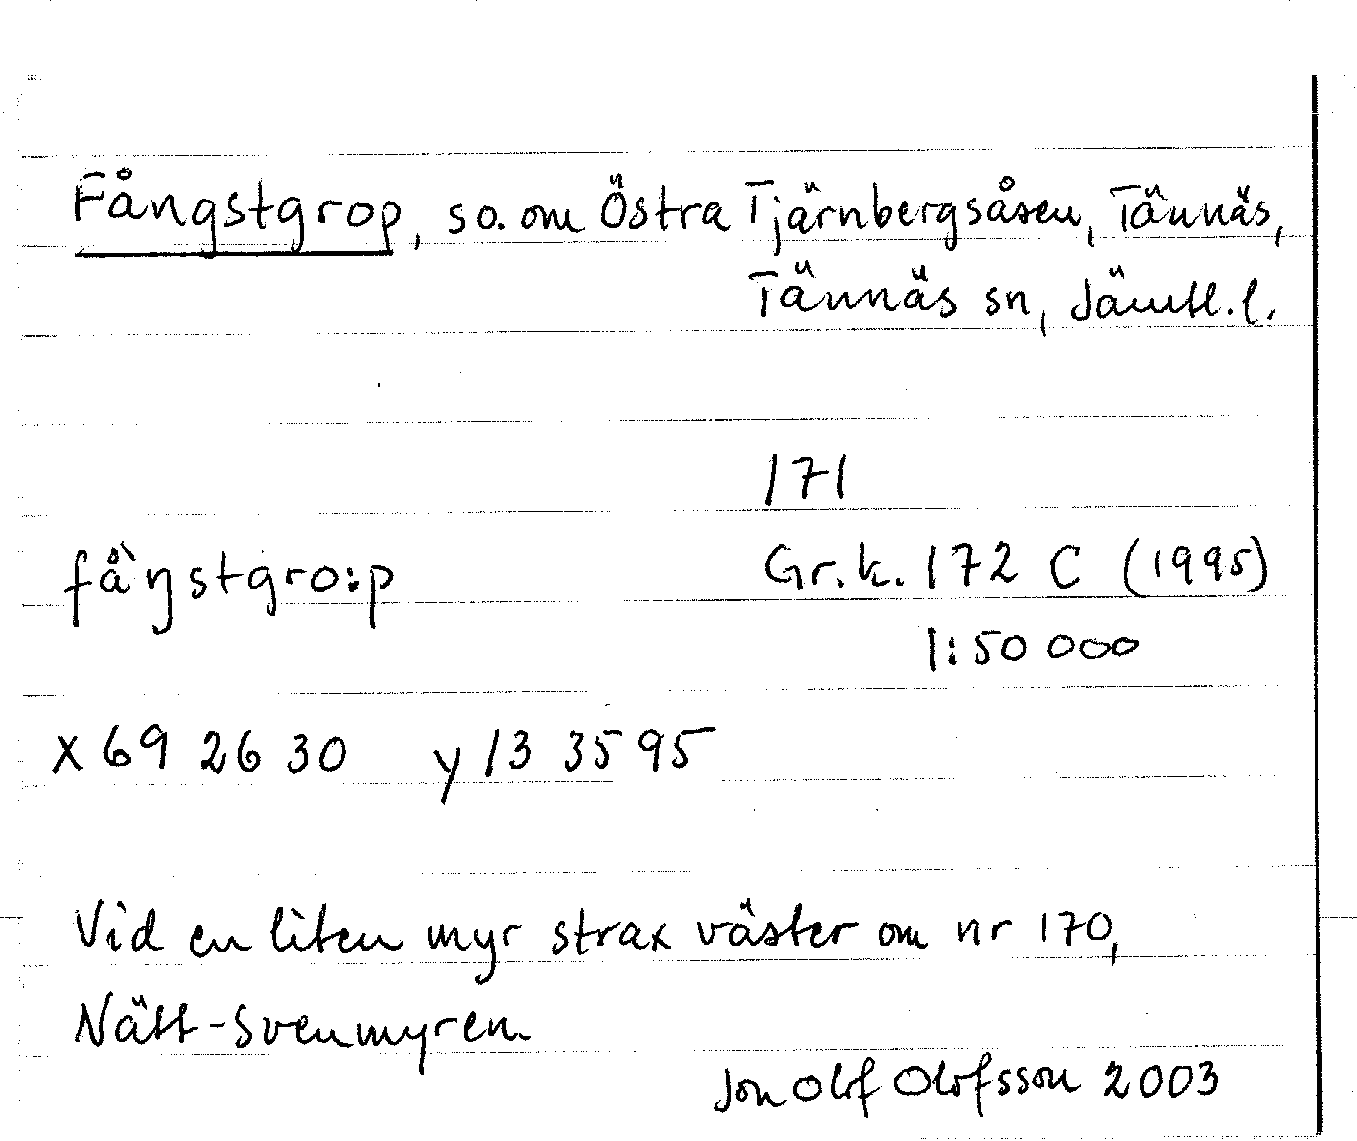 Fångstgrop, so. om Östra Tjärnbergsåsen, Tännäs,
Tännäs sn, Jämtl. l.
171
få`ŋstgro:p
Gr.k. 172 C (1995)
1:50 000
x 69 26 30 y 13 35 95
Vid en liten myr strax väster om nr 170,
Nätt-Svenmyren.
Jon Olof Olofsson 2003